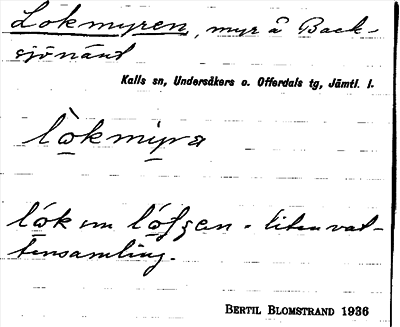 Lokmyren, myr å Back-
sjönäset
Kalls sn, Undersåkers o. Offerdals tg, Jämtl. l.
lòkmyra
lók em - liten vat-
tensamling.
BERTIL BLOMSTRAND 1936